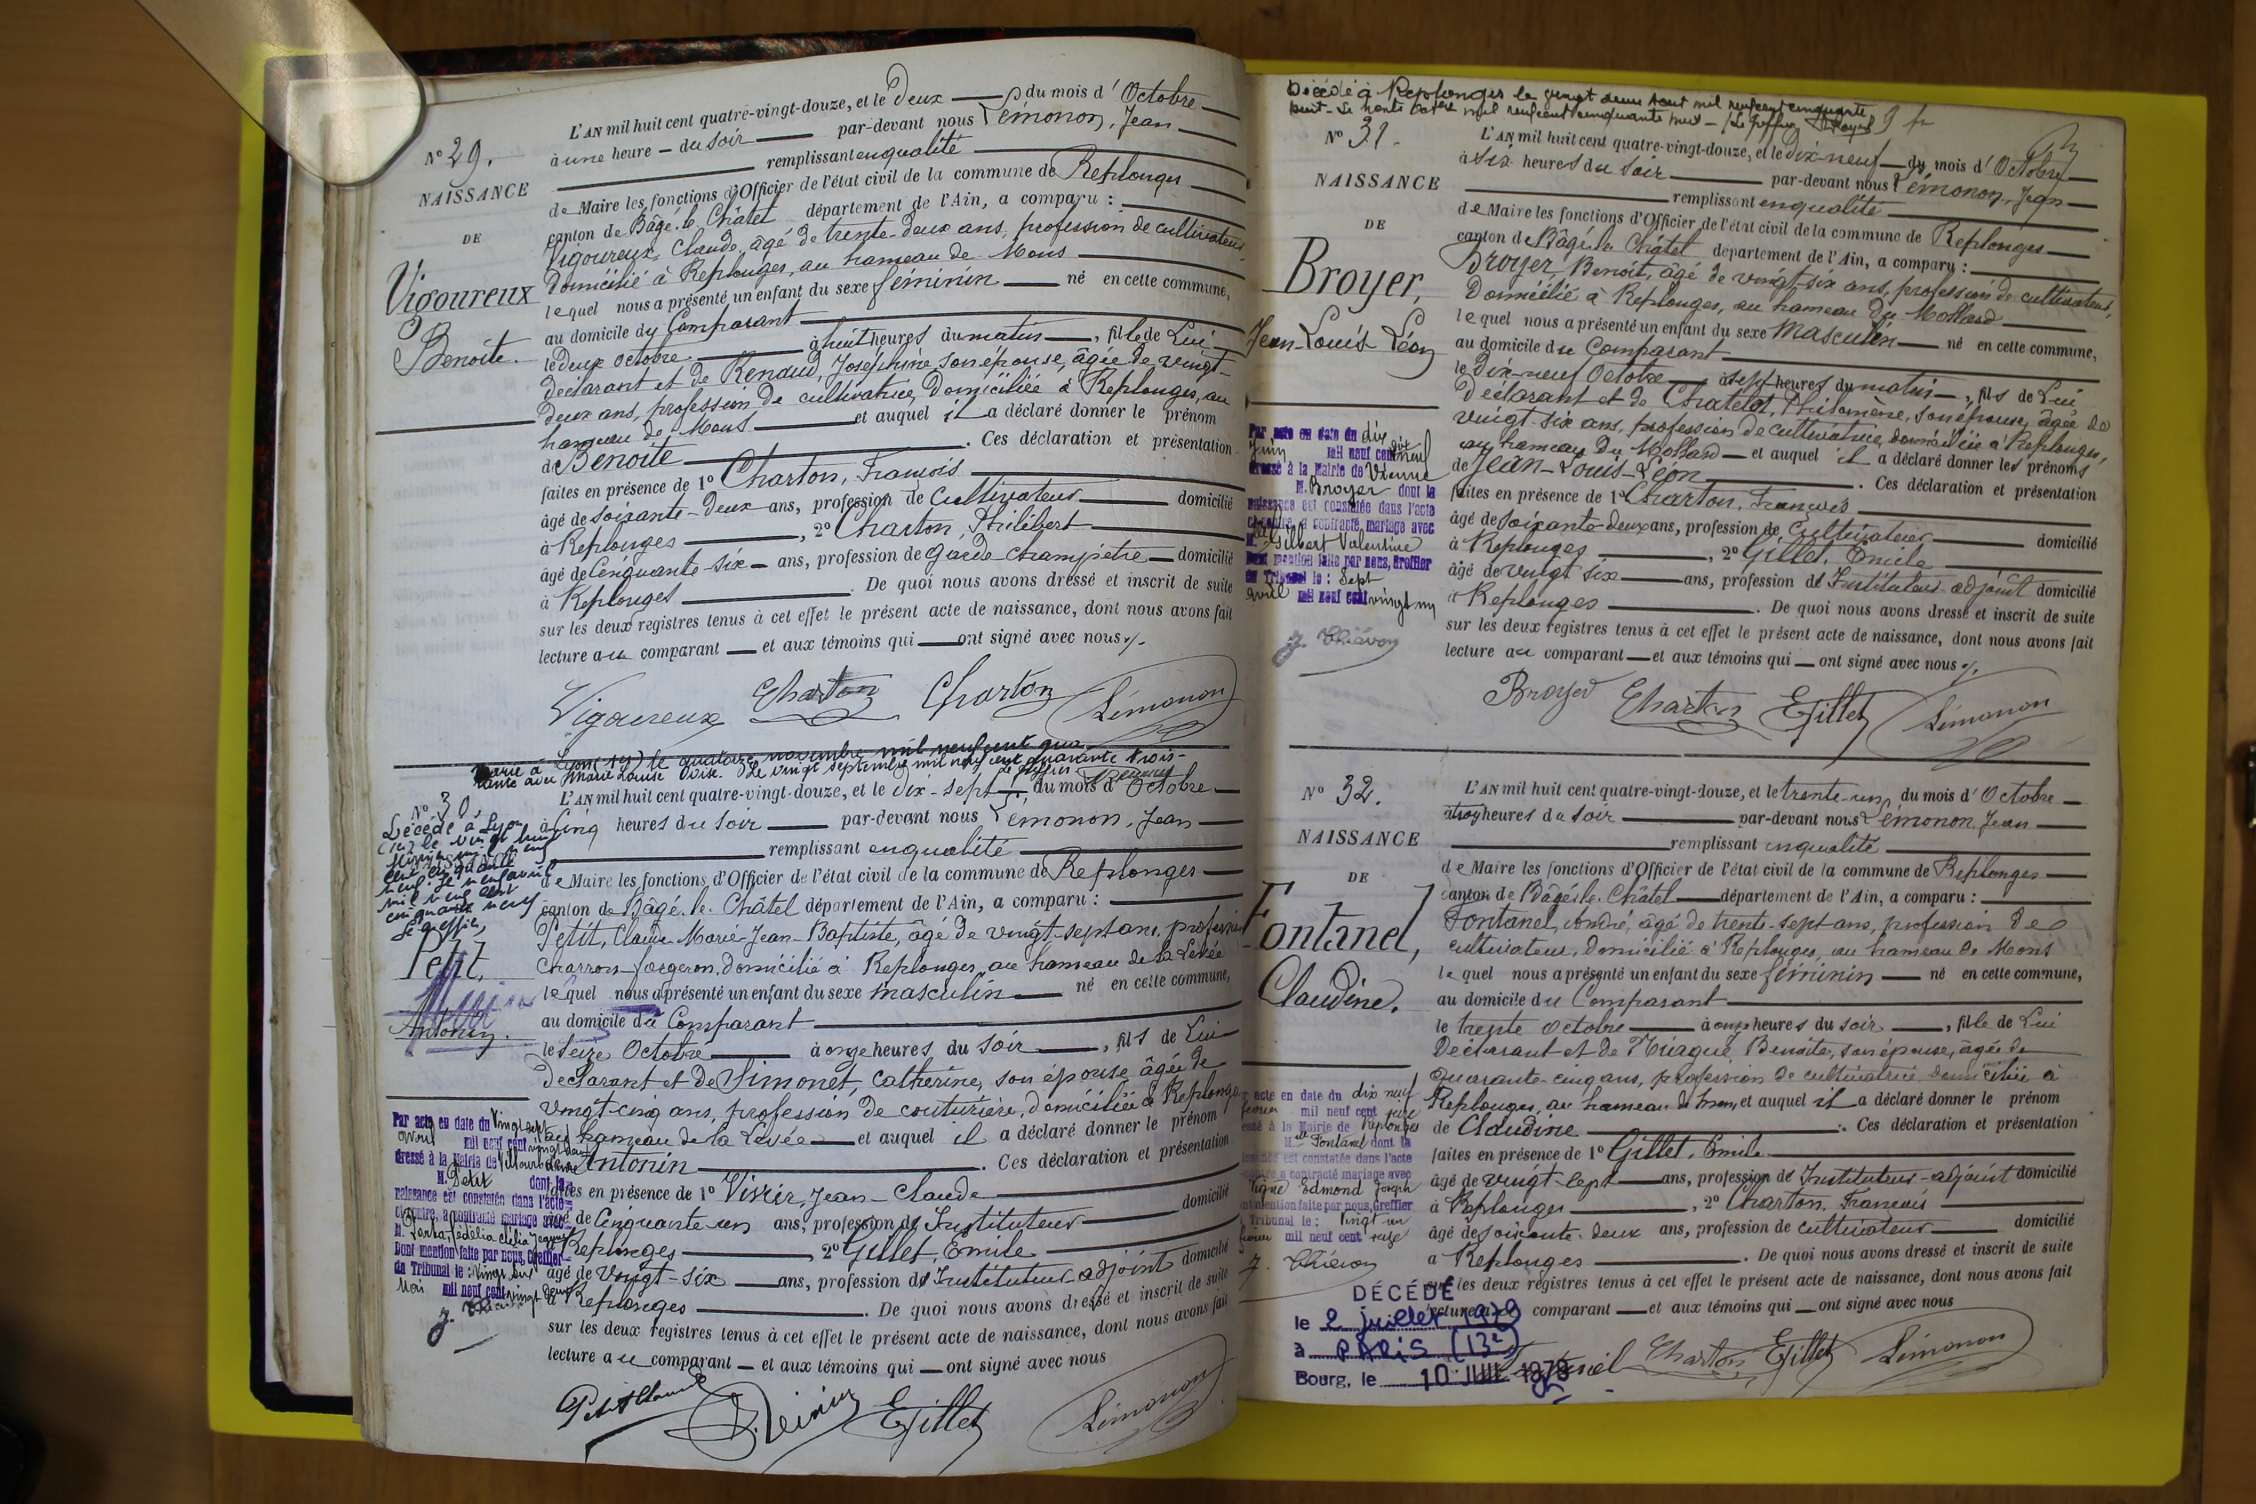 L'AN mil huit cent quatre-vingt-douze, et le Deux du mois d'Octobre
à une heure du soir par-devant nous Lémonon, Jean
remplissant en qualité
de Maire les fonctions d'Officier de l'état civil de la commune de Replonges
canton de Bâgé-le-Châtel département de l'Ain, a comparu :
Vigoureux, Claude, âgé de trente-deux ans, profession de cultivateur,
Domicilié à Replonges, au hameau de Mons
lequel nous a présenté un enfant du sexe féminin né en cette commune,
au domicile du Comparant
le deux octobre à huit heures du matin, fille de Lui
déclarant et de Renaud, Joséphine, son épouse, âgée de vingt-
deux ans, profession de cultivatrice, Domiciliée à Replonges, au
hameau de Mons et auquel il a déclaré donner le prénom
de Benoite. Ces déclaration et présentation
faites en présence de 1° Charton, François
âgé de soixante-deux ans, profession de cultivateur domicilié
à Replonges, 2° Charton, Philibert
âgé de Cinquante-six ans, profession de garde champêtre domicilié
à Replonges. De quoi nous avons dressé et inscrit de suite
sur les deux registres tenus à cet effet le présent acte de naissance, dont nous avons fait
lecture au comparant et aux témoins qui ont signé avec nous
N° 29.
NAISSANCE
DE
Vigoureux
Benoite.
Vigoureux Charton Charton Lémonon
Marié à Lyon le quatorze novembre mil neuf cent qua-
rante avec Marie Louise. Le vingt septembre mil neuf cent quarante trois-
Le Greffier
N° 30.
Décédé à Lyon
NAISSANCE
mil neuf cent
cinquante neuf
Le Greffier,
Petit,
Antonin.
L'AN mil huit cent quatre-vingt-douze, et le dix-sept du mois d'Octobre
à Cinq heures du soir par-devant nous Lémonon, Jean
remplissant en qualité
de Maire les fonctions d'Officier de l'état civil de la commune de Replonges
canton de Bâgé-le-Châtel département de l'Ain, a comparu :
Petit, Claude Marie Jean-Baptiste, âgé de vingt-sept ans, profession
charron-forgeron, domicilié à Replonges, au hameau de la Levée
lequel nous a présenté un enfant du sexe masculin né en cette commune,
au domicile du Comparant
le Seize Octobre à onze heures du soir, fils de Lui
déclarant et de Simonet, Catherine, son épouse, âgée de
vingt-cinq ans, profession de couturière, domiciliée à Replonges
au hameau de la Levée et auquel il a déclaré donner le prénom
Antonin. Ces déclaration et présentation
faites en présence de 1° Vivier, Jean-Claude
âgé de Cinquante-un ans, profession d'Instituteur domicilié
à Replonges 2° Gillet, Emile
âgé de Vingt-six ans, profession d'Instituteur-adjoint domicilié
à Replonges. De quoi nous avons dressé et inscrit de suite
sur les deux registres tenus à cet effet le présent acte de naissance, dont nous avons fait
lecture au comparant et aux témoins qui ont signé avec nous
Par acte en date du Vingt sept
avril mil neuf cent vingt deux
dressé à la Mairie de Villeurbanne
M. Petit dont la
naissance est constatée dans l'acte
ci-contre, a contracté mariage avec
Dont mention faite par nous, Greffier
du Tribunal le : Vingt six
Mai mil neuf cent vingt deux
Petit Claude Vivier E Gillet Lémonon
Décédé à Replonges le vingt deux août mil neuf cent cinquante
huit - Le trente octobre mil neuf cent cinquante huit - Le Greffier
N° 31.
NAISSANCE
DE
Broyer,
Jean-Louis Léon
L'AN mil huit cent quatre-vingt-douze, et le dix-neuf du mois d'Octobre
à six heures du soir par-devant nous Lémonon, Jean
remplissant en qualité
de Maire les fonctions d'Officier de l'état civil de la commune de Replonges
canton de Bâgé-le-Châtel département de l'Ain, a comparu :
Broyer, Benoît, âgé de vingt-six ans, profession de cultivateur,
Domicilié à Replonges, au hameau du Mollard
lequel nous a présenté un enfant du sexe Masculin né en cette commune,
au domicile du Comparant
le Dix-neuf Octobre à sept heures du matin, fils de Lui
Déclarant et de Chatelet, Philomène, son épouse, âgée de
vingt-six ans, profession de cultivatrice, domiciliée à Replonges,
au hameau du Mollard et auquel il a déclaré donner les prénoms
de Jean-Louis-Léon. Ces déclaration et présentation
faites en présence de 1° Charton, François
âgé de soixante-deux ans, profession de Cultivateur domicilié
à Replonges, 2° Gillet, Emile
âgé de vingt six ans, profession d'Instituteur-adjoint domicilié
à Replonges. De quoi nous avons dressé et inscrit de suite
sur les deux registres tenus à cet effet le présent acte de naissance, dont nous avons fait
lecture au comparant et aux témoins qui ont signé avec nous
Par acte en date du dix
Juin mil neuf cent dix neuf
dressé à la Mairie de Vienne
M. Broyer dont la
naissance est constatée dans l'acte
ci-contre, a contracté mariage avec
Gilbert Valentine
Dont mention faite par nous, Greffier
du Tribunal le : Sept
avril mil neuf cent vingt un
Broyer Charton E Gillet Lémonon
N° 32.
NAISSANCE
DE
Fontanel,
Claudine.
L'AN mil huit cent quatre-vingt-douze, et le trente-un du mois d'Octobre
à trois heures du soir par-devant nous Lémonon, Jean
remplissant en qualité
de Maire les fonctions d'Officier de l'état civil de la commune de Replonges
canton de Bâgé-le-Châtel département de l'Ain, a comparu :
Fontanel, André, âgé de trente-sept ans, profession de
cultivateur, domicilié à Replonges, au hameau de Mons
lequel nous a présenté un enfant du sexe féminin né en cette commune,
au domicile du Comparant
le trente octobre à onze heures du soir, fille de Lui
Déclarant et de Benoîte, son épouse, âgée de
quarante-cinq ans, profession de cultivatrice domiciliée à
Replonges, au hameau de Mons, et auquel il a déclaré donner le prénom
de Claudine. Ces déclaration et présentation
faites en présence de 1° Gillet, Emile
âgé de vingt-sept ans, profession d'Instituteur-adjoint domicilié
à Replonges, 2° Charton, François
âgé de soixante-deux ans, profession de cultivateur domicilié
à Replonges. De quoi nous avons dressé et inscrit de suite
sur les deux registres tenus à cet effet le présent acte de naissance, dont nous avons fait
lecture au comparant et aux témoins qui ont signé avec nous
acte en date du dix neuf
février mil neuf cent seize
à la Mairie de Replonges
Fontanel dont la
est constatée dans l'acte
a contracté mariage avec
Edmond Joseph
mention faite par nous, Greffier
Tribunal le : vingt un
février mil neuf cent seize
DÉCÉDÉ
le 2 juillet 1979
à PARIS (13e)
Bourg, le 10 JUIL 1979
Fontanel Charton E Gillet Lémonon